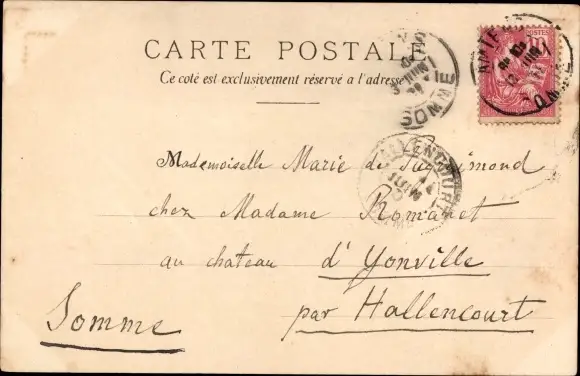 CARTE POSTALE
Ce coté est exclusivement réservé a l'adresse
POSTES
10
SOMME
HALLENCOURT
JUIN
Mademoiselle Marie de
chez Madame Romanet
au chateau d'Yonville
par Hallencourt
Somme